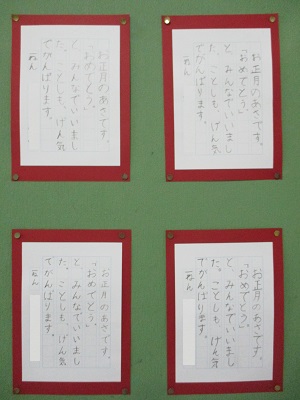 お正月のあさです。
「おめでとう。」
と、みんなでいいまし
た。ことしも、げん気
でがんばります。
一ねん
お正月のあさです。
「おめでとう。」
と、みんなでいいまし
た。ことしも、げん気
でがんばります。
一ねん
お正月のあさです。
「おめでとう。」
と、みんなでいいまし
た。ことしも、げん気
でがんばります。
一ねん
お正月のあさです。
「おめでとう。」
と、みんなでいいまし
た。ことしも、げん気
でがんばります。
一ねん